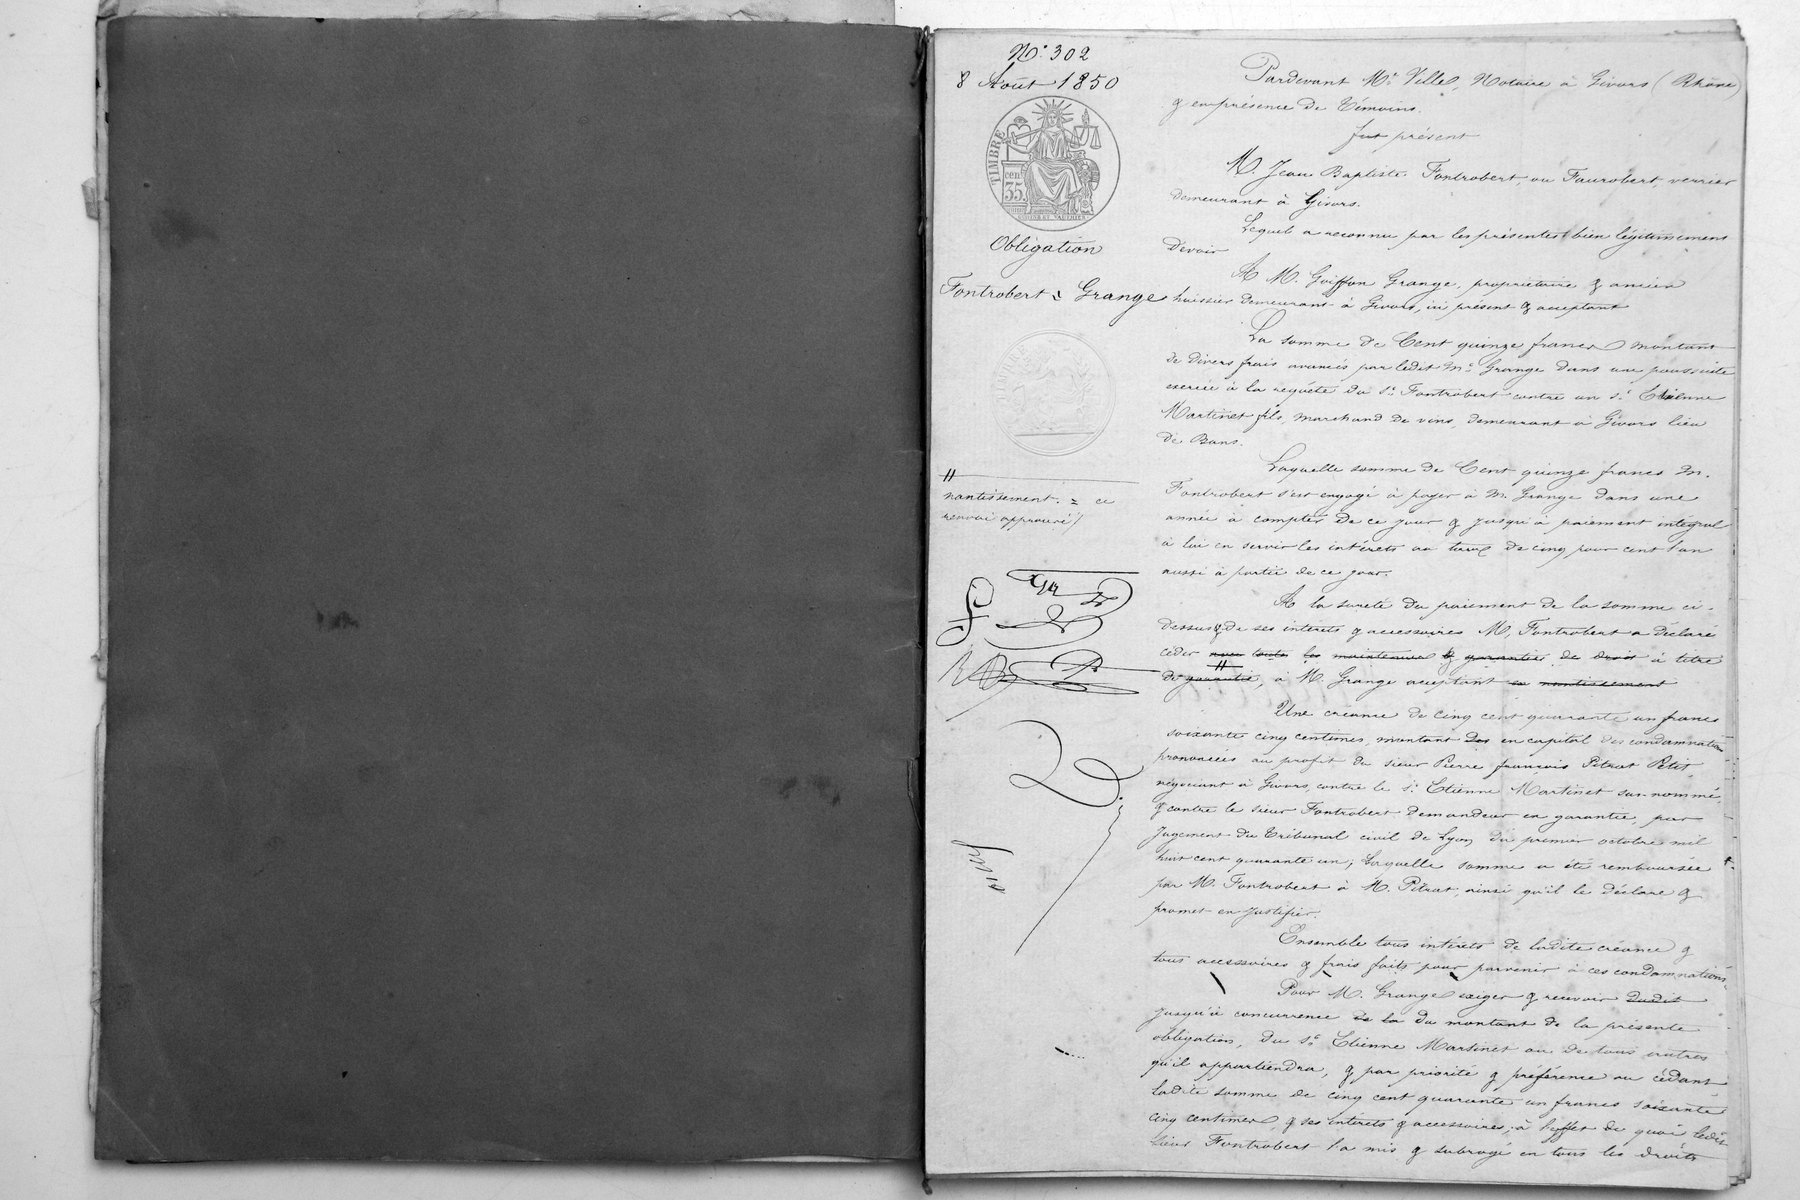 N.° 302
8 Août 1850
TIMBRE
cen
35
Obligation
Fontrobert = Grange
nantissement. = ce
renvoi approuvé /
Pardevant Me. Ville, Notaire à Givors (Rhône)
& en présence de Témoins.
fut présent
M. Jean Baptiste Fontrobert, ou Faurobert, verrier
demeurant à Givors.
Lequel a reconnu par les présentes bien légitimement
devoir
A M. Goiffon Grange, propriétaire & ancien
huissier demeurant à Givors, ici présent & acceptant
La somme de Cent quinze francs montant
de divers frais avancés par ledit Me. Grange dans une poursuite
exercée à la requête du Sr. Fontrobert contre un Sr. Etienne
Martinet fils, marchand de vins, demeurant à Givors lieu
de Bans.
Laquelle somme de Cent quinze francs M.
Fontrobert s'est engagé à payer à M. Grange dans une
année à compter de ce jour & jusqu'à paiement intégral
à lui en servir les intérêts au taux de cinq pour cent l'an
aussi à partir de ce jour.
A la sureté du paiement de la somme ci-
dessus & de ses intérêts & accessoires M. Fontrobert a déclaré
céder avec toutes les maintenue & garanties de droit à titre
de garantie, à M. Grange acceptant en nantissement
Une créance de cinq cent quarante un francs
soixante cinq centimes, montant des en capital des condamnations
prononcées au profit du sieur Pierre françois Pitrat Petit
négociant à Givors, contre le Sr. Etienne Martinet sus-nommé,
& contre le sieur Fontrobert demandeur en garantie, par
Jugement du Tribunal civil de Lyon du premier octobre mil
huit cent quarante un; Laquelle somme a été remboursée
par M. Fontrobert à M. Pitrat, ainsi qu'il le déclare &
promet en justifier.
Ensemble tous intérêts de ladite créance &
tous accessoires & frais faits pour parvenir à ces condamnations.
Pour M. Grange exiger & recevoir dudit
jusqu'à concurrence de la du montant de la présente
obligation, du Sr. Etienne Martinet ou de tous autres
qu'il appartiendra, & par priorité & préférence au cédant
ladite somme de cinq cent quarante un francs soixante
cinq centimes, & ses intérêts & accessoires; à l'effet de quoi ledit
sieur Fontrobert l'a mis & subrogé en tous les droits